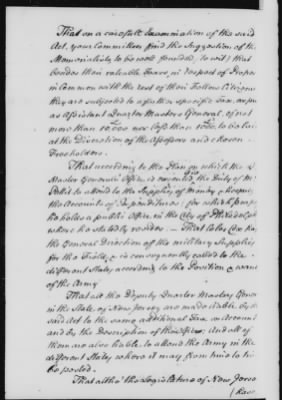 That on a carefull Examination of the said
Act, your Committee find the Suggestion of the
Memorialists to be well founded, to wit, that
besides their valuable Taxes, in respect of Proper
in common with the rest of their Fellow Citizens
they are subjected to a further specific Tax,
as Assistant Quarter Masters General, of not
more than 10,000 nor less than to be lai
at the Discretion of the Assessors and chosen
Freeholders.
That according to the Plan on which the
Master Generals Office is the Duty of Mr
Pettit to attend to the Supplies of Money & keepin
the Accounts of Expenditures, for which purp
he holds a public Office in the City of Philadelph
where he statedly resides — That Colos Cox ha
the General Direction of the military Supplies
for the Field, & is consequently called to the
different States, according to the Position & wants
of the Army
That as the Deputy Quarter Masters Gener
in the State of New Jersey are made liable by th
said Act to the same additional Tax
and by the Description of their Office; And all of
them are also liable to attend the Army in the
different States where it may from time to tim
be posted.
That altho' the Legislature of New Jersey